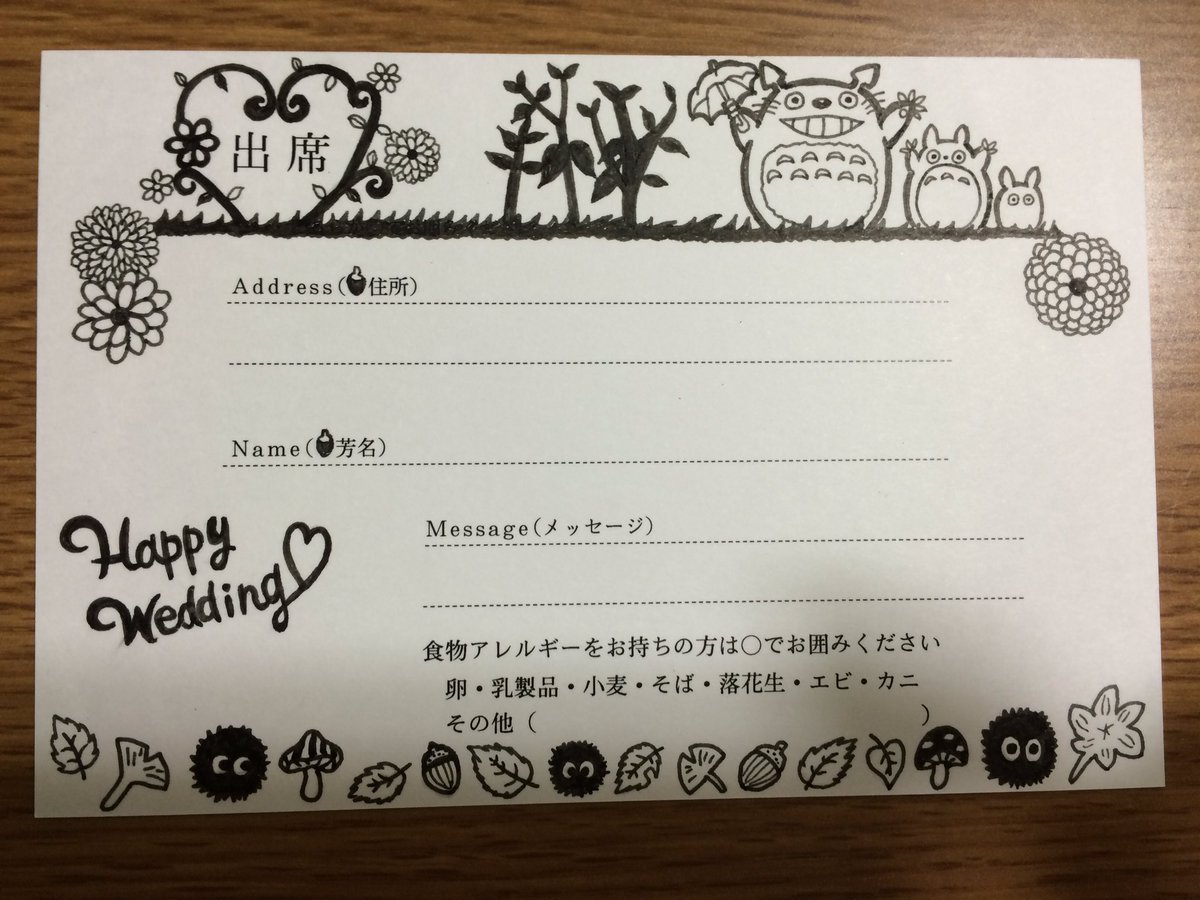 出席
Address(住所)
Name(芳名)
Message(メッセージ)
Happy
Wedding
食物アレルギーをお持ちの方は〇でお囲みください
卵・乳製品・小麦・そば・落花生・エビ・カニ
その他（　　　）